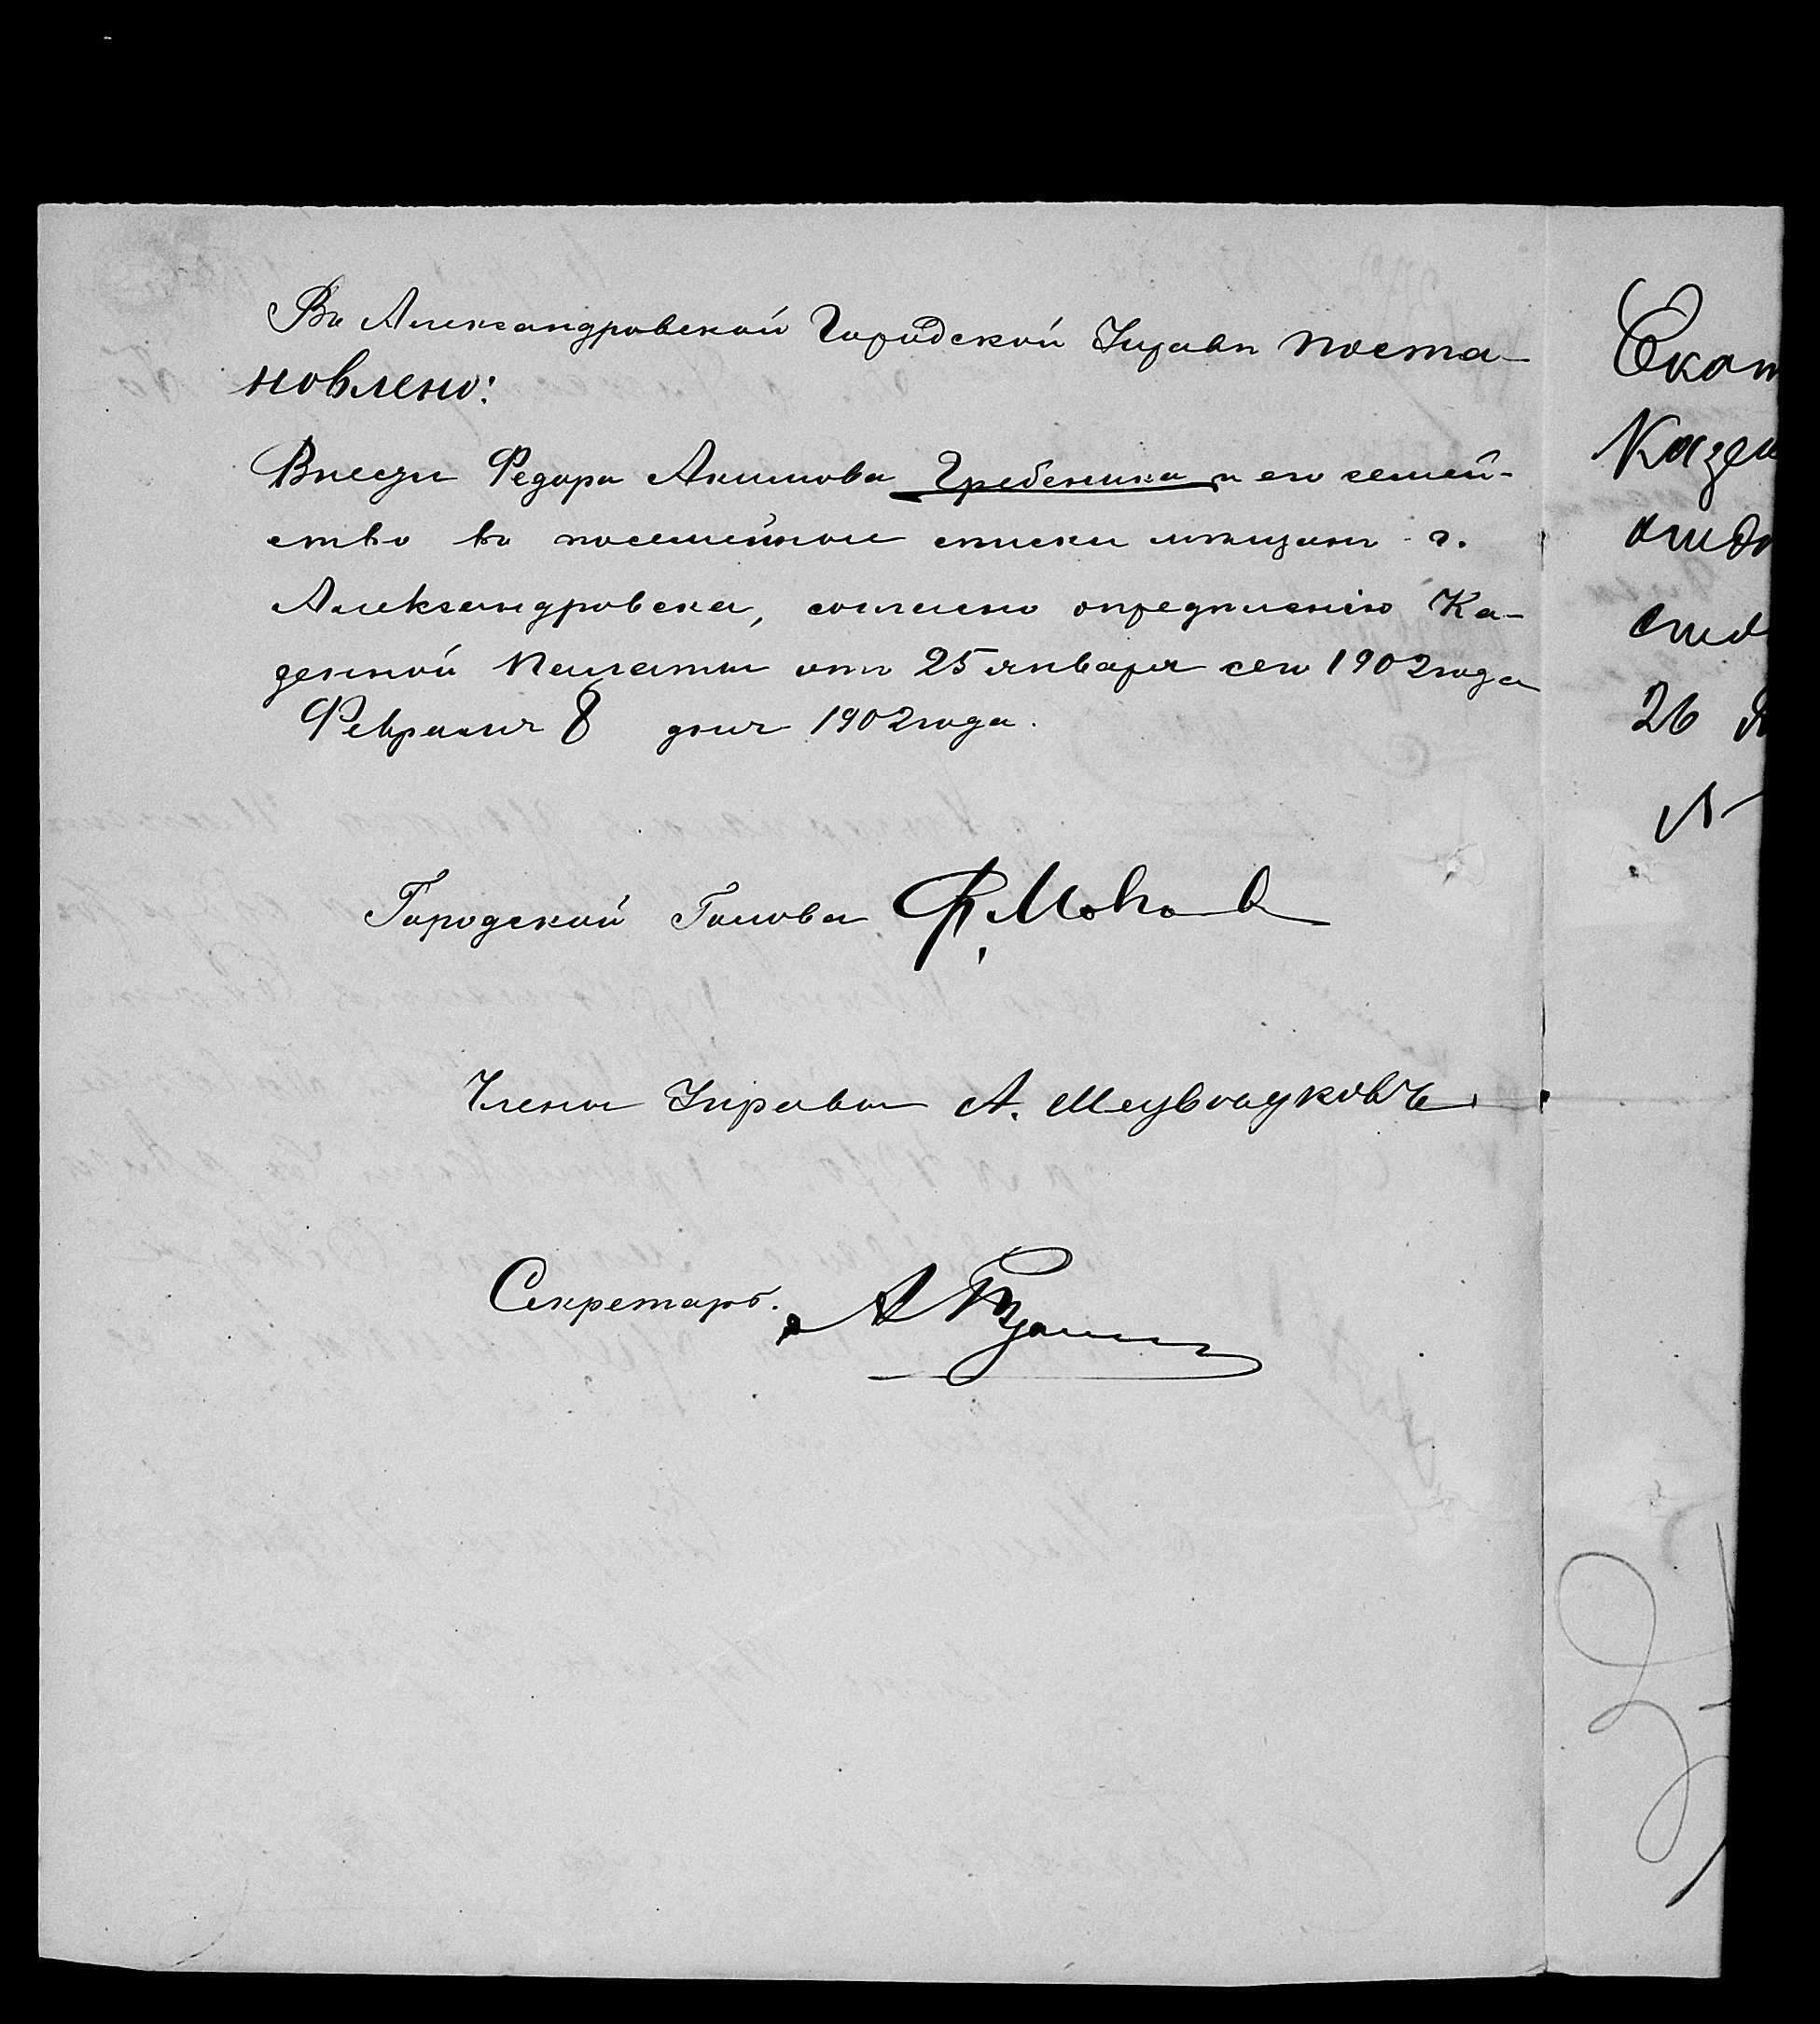 Въ Александровской Городской Управѣ поста-
новлено:
Внести Федора Акимова Гребеника и его семей-
ство въ посемейные списки мѣщанъ г.
Александровска, согласно опредѣленію Ка-
зенной Палаты отъ 25 января сего 1902 года
Февраля 8 дня 1902 года.
Городской Голова Ф. Мов
Члены Управы А.
Секретарь. А
Екат
Казен
отдѣ
стол
26 Я
№